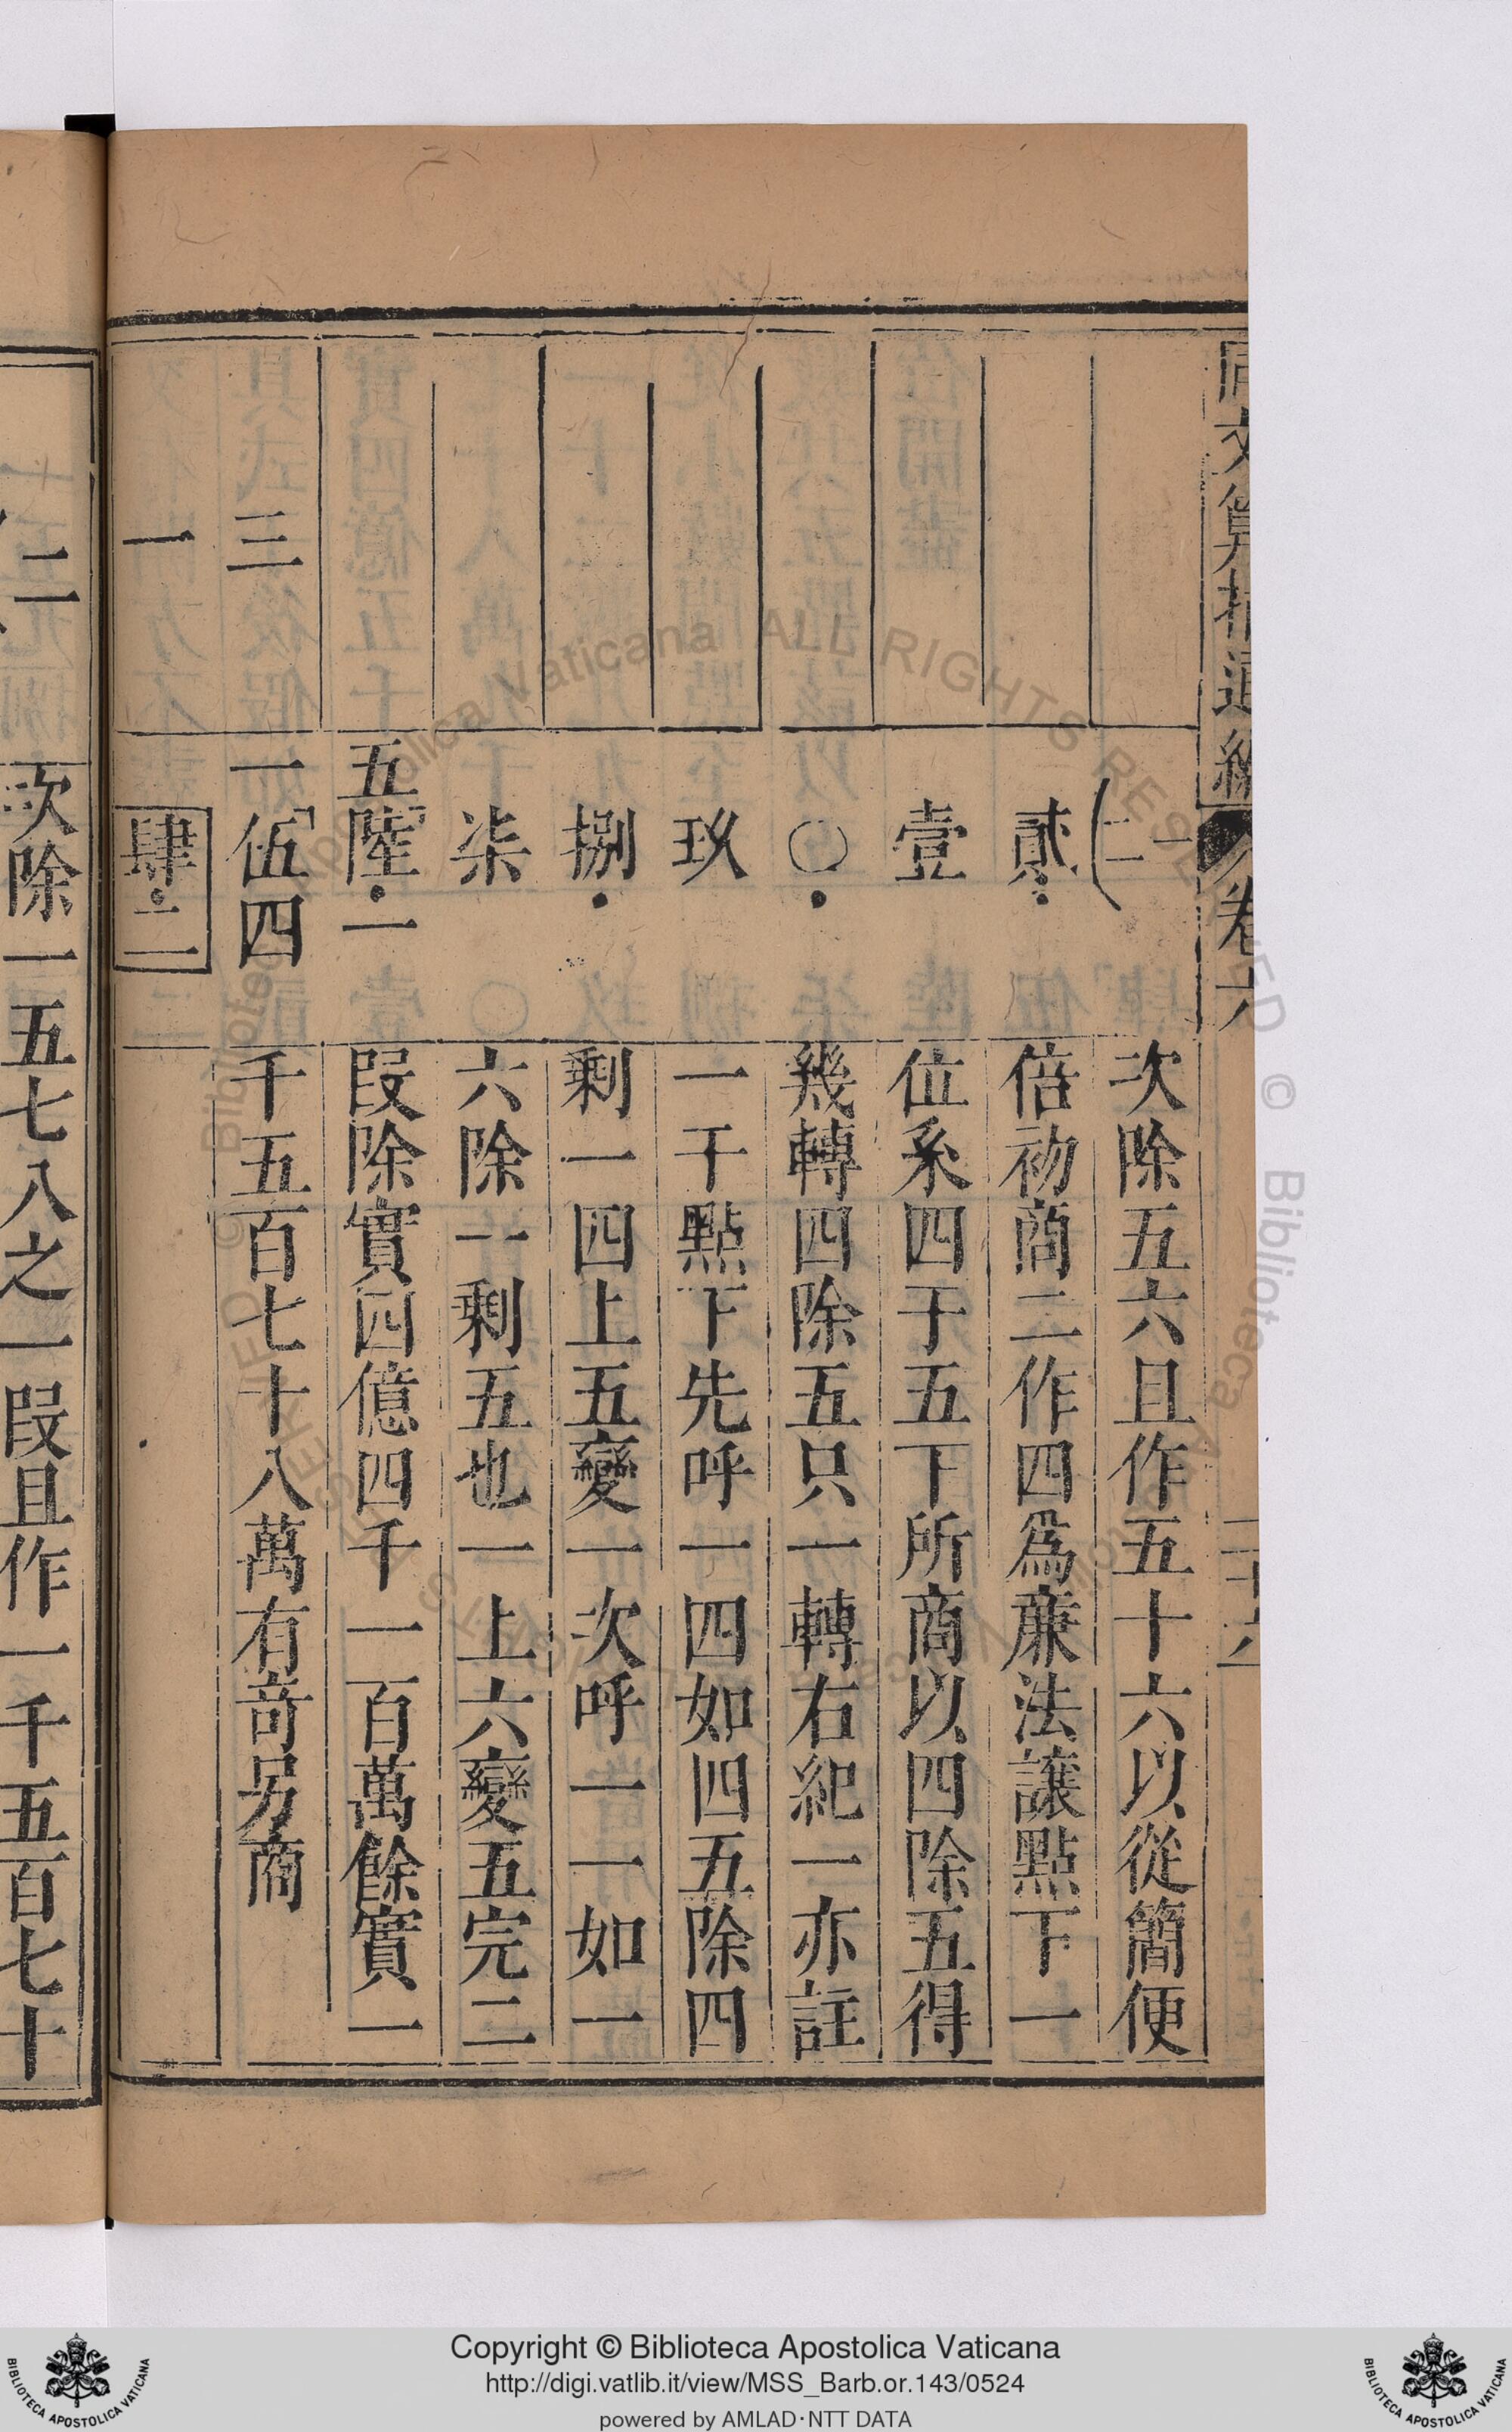 同文算指通編 卷六
次除五六且作五十六以從簡便
倍初商二作四爲廉法讓點下一
位系四于五下所商以四除五得
幾轉四除五只一轉右紀一亦註
一于點下先呼一四如四五除四
剩一四上五變一次呼一一如一
六除一剩五也一上六變五完二
段除實四億四千一百萬餘實一
千五百七十八萬有奇另商
二一
貳
二
壹
〇
玖
捌
柒
五陸一
三一伍四
一肆二一
二
次除一五七八之一段且作一千五百七十
Copyright © Biblioteca Apostolica Vaticana
http://digi.vatlib.it/view/MSS_Barb.or.143/0524
powered by AMLAD·NTT DATA
BIBLIOTECA APOSTOLICA VATICANA
BIBLIOTECA APOSTOLICA VATICANA